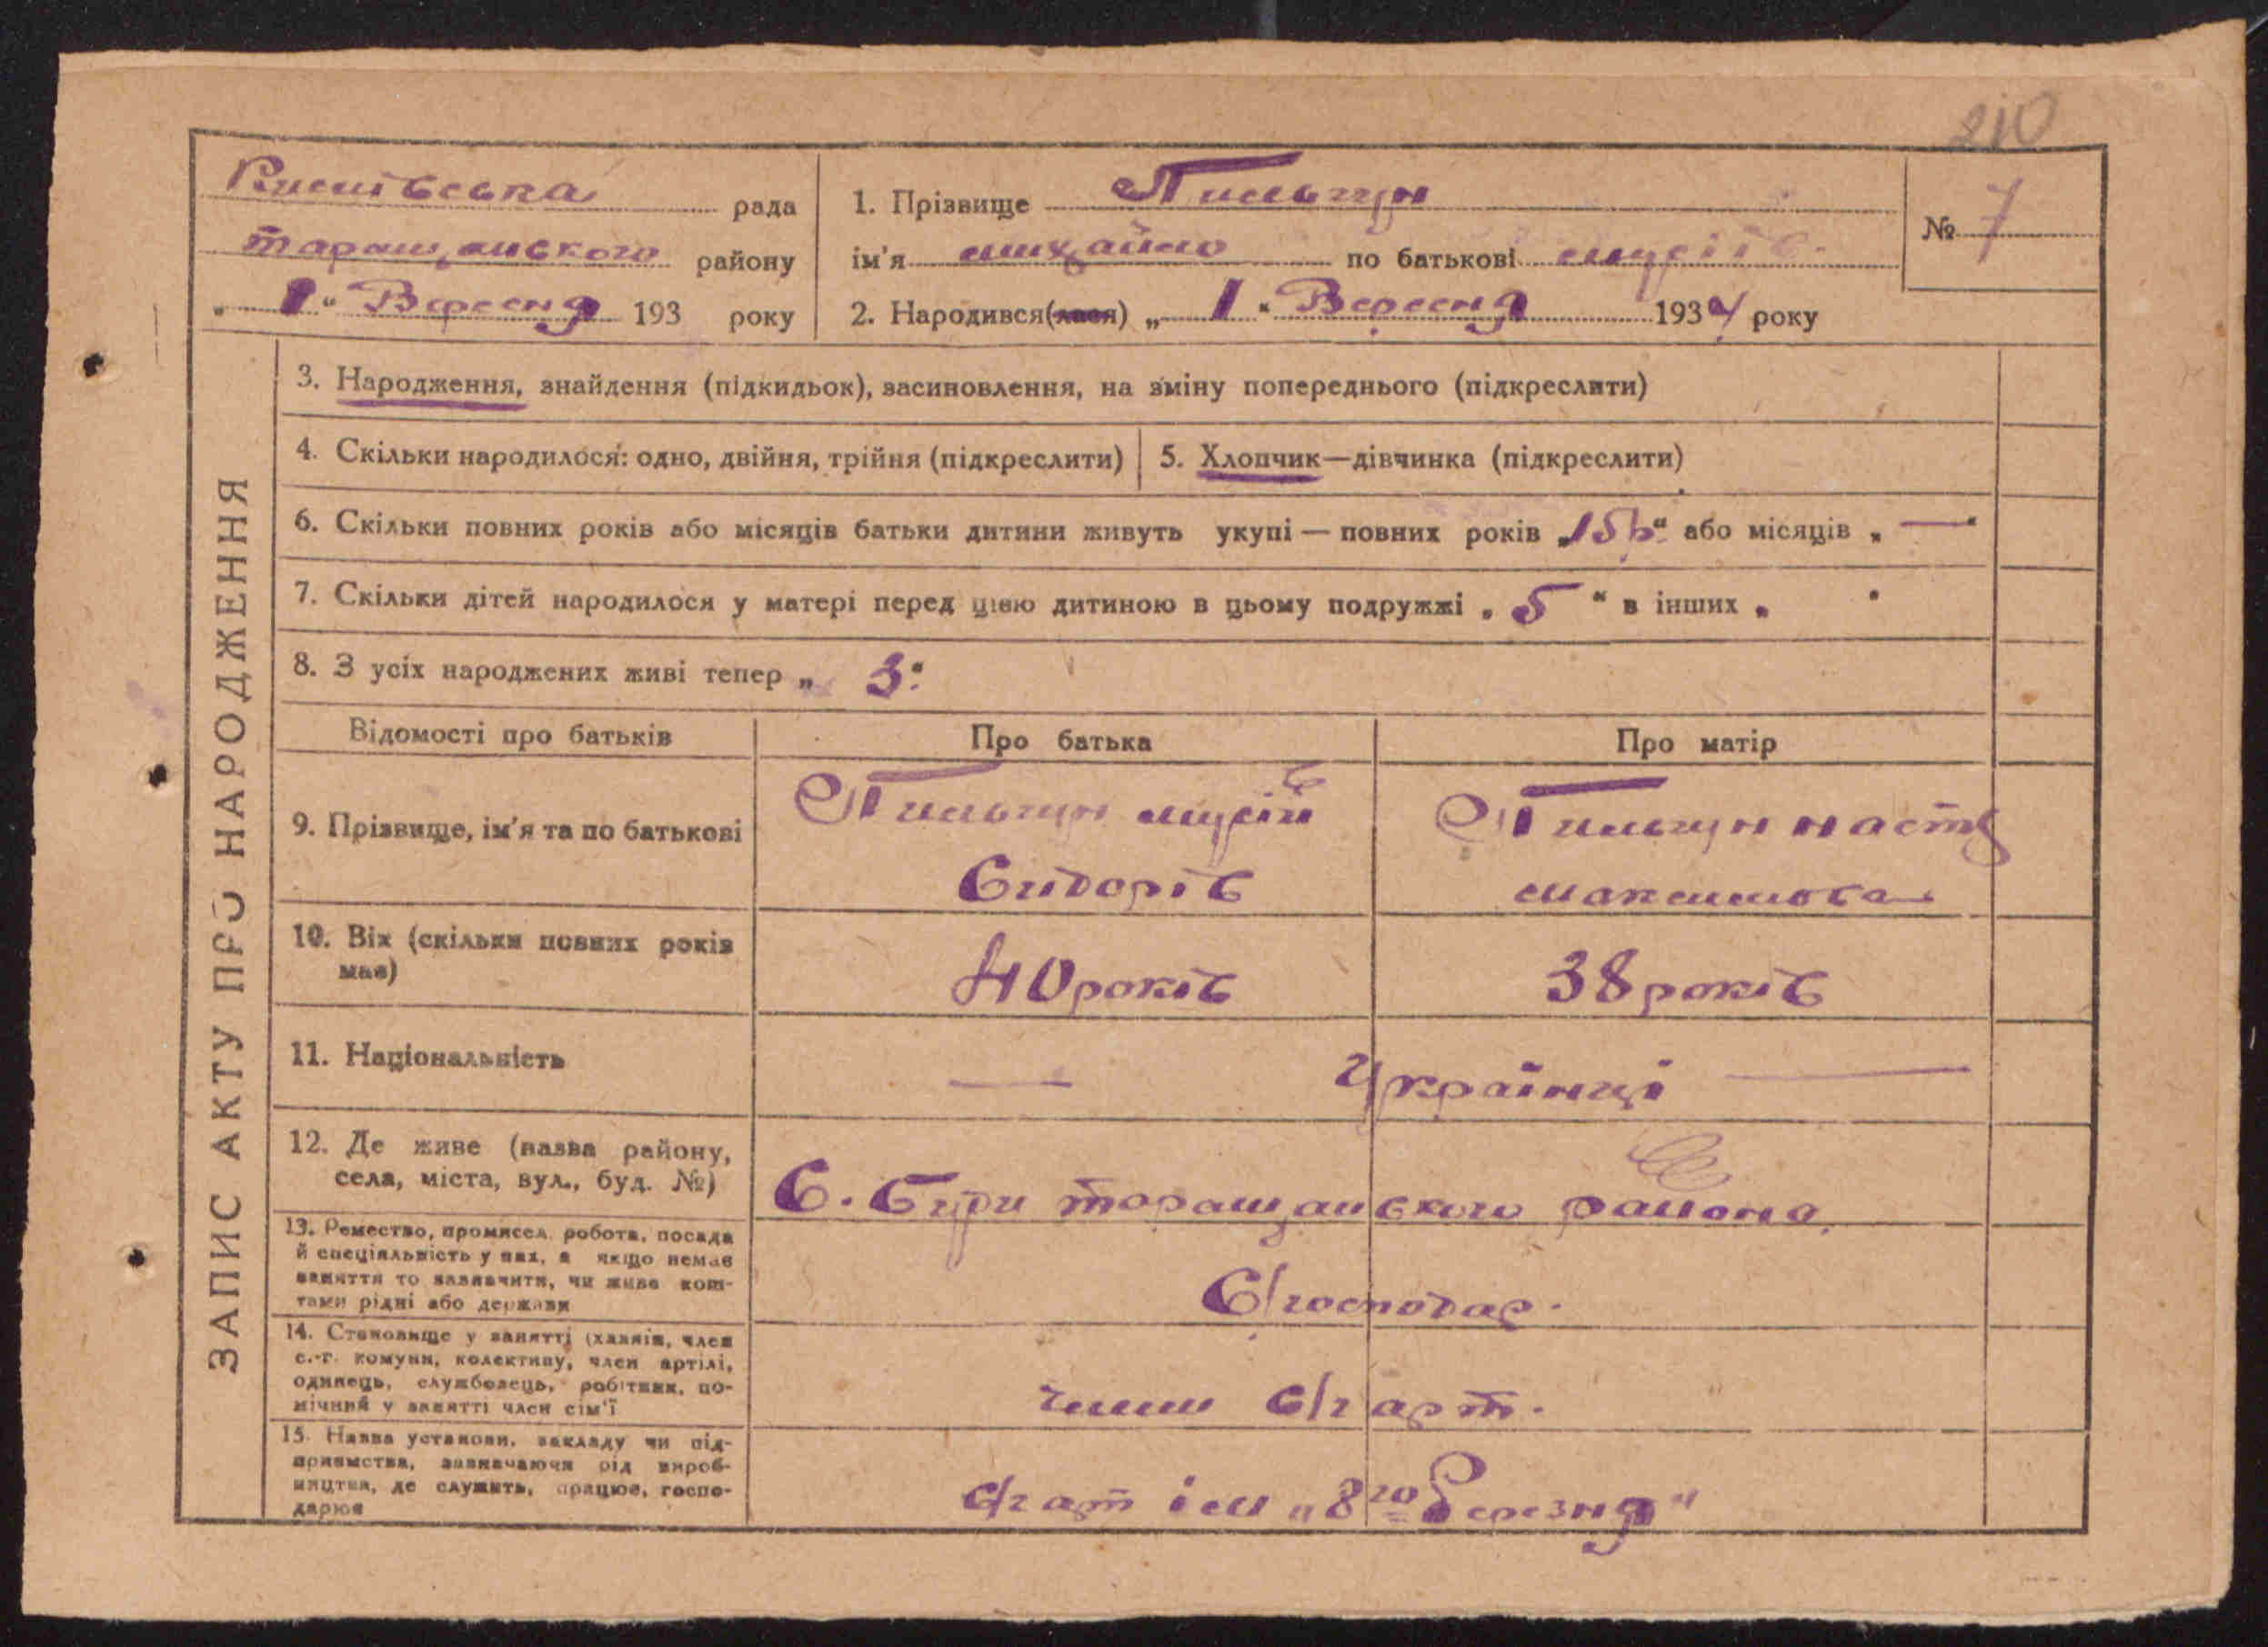 210
рада
таращанского району
„ 1 " Вересня 193 року
1. Прізвище Пильгун
ім'я михайло по батькові мусіїв.
2. Народився(лася) „ 1 " Вересня 1934 року
№ 7
ЗАПИС АКТУ ПРО НАРОДЖЕННЯ
3. Народження, знайдення (підкидьок), засиновлення, на зміну попереднього (підкреслити)
4. Скільки народилося: одно, двійня, трійня (підкреслити)
5. Хлопчик—дівчинка (підкреслити)
6. Скільки повних років або місяців батьки дитини живуть укупі — повних років „15р" або місяців „ — "
7. Скільки дітей народилося у матері перед цією дитиною в цьому подружжі „ 5 " в інших „ "
8. З усіх народжених живі тепер „ 3 "
Відомості про батьків
Про батька
Про матір
9. Прізвище, ім'я та по батькові
Пильгун мусій
Сидорів
Пильгун настя
максимова
10. Вік (скільки повних років
має)
40 років
38 років
11. Національність
— Українці —
12. Де живе (назва району,
села, міста, вул., буд. №)
С. таращанского района
13. Ремество, промисел, робота, посада
й спеціяльність у них, а якщо немає
заняття то зазначити, чи живе кош-
тами рідні або держави
С/господар.
14. Становище у занятті (хазяїн, член
с.-г. комуни, колективу, член артілі,
одинець, службовець, робітник, по-
мічний у занятті член сім'ї
член с/г арт.
15. Назва установи, закладу чи під-
приємства, зазначаючи рід вироб-
ництва, де служить, працює, госпо-
дарює
с/г арт ім „8го Березня"